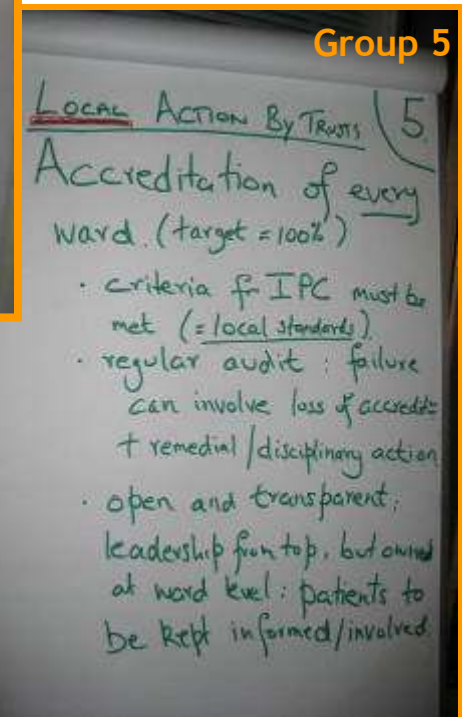 Group 5
LOCAL ACTION BY TRUSTS 5.
Accreditation of every
ward. (target = 100%)
· criteria for IPC must be
met (= local standards).
· regular audit : failure
can involve loss of accredit=
+ remedial / disciplinary action
· open and transparent.
leadership from top, but owned
at ward level : patients to
be kept informed/involved.